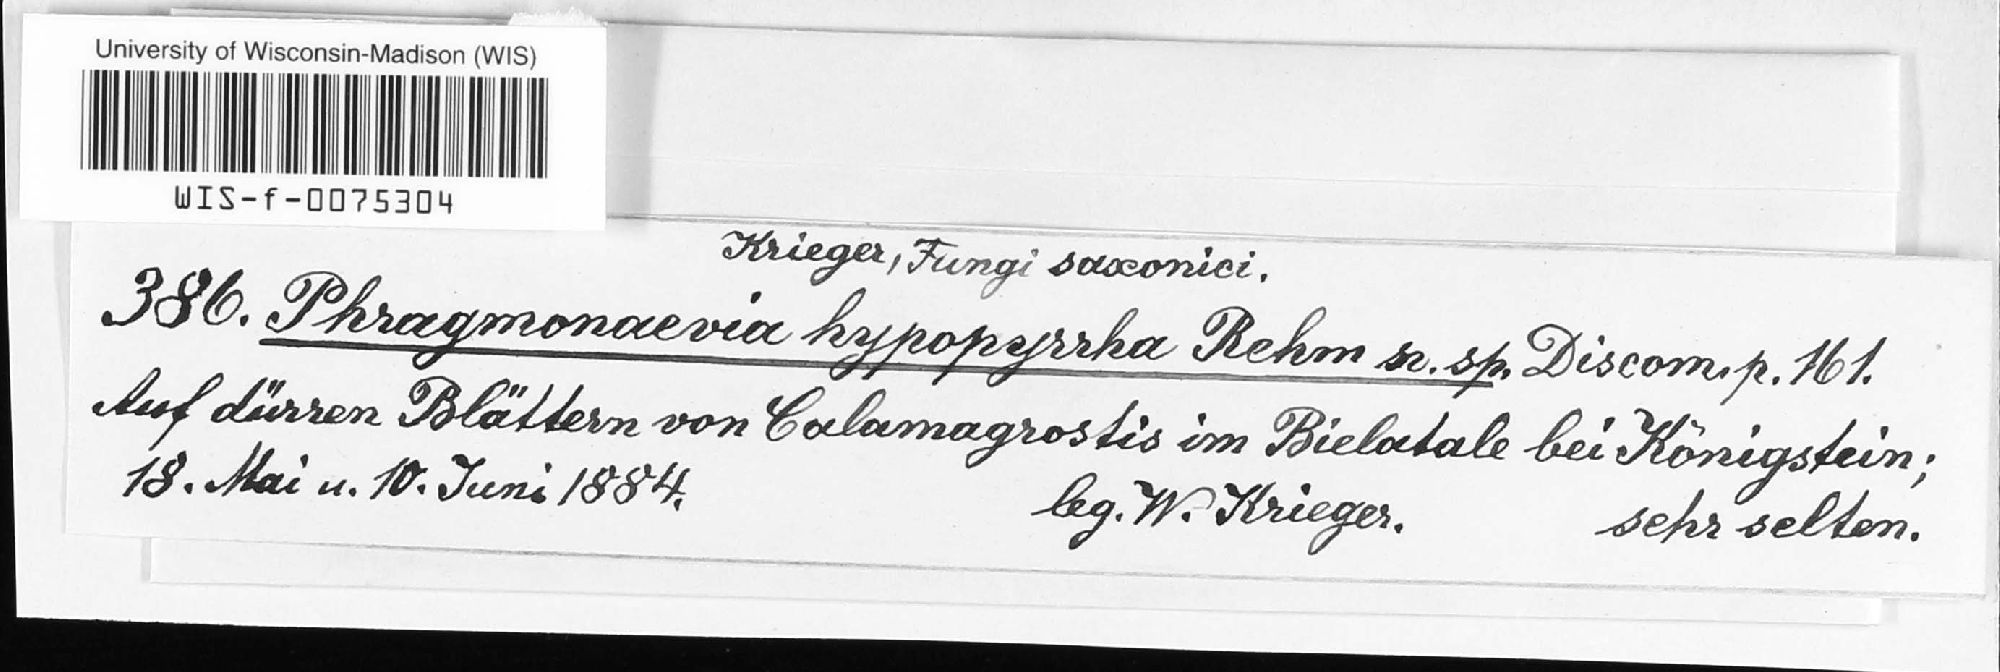 University of Wisconsin-Madison (WIS)
WIS-f-0075304
Krieger, Fungi saxonici.
386. Phragmonaevia hypopyrrha Rehm n. sp. Discom. p. 161.
Auf dürren Blättern von Calamagrostis im Bielatale bei Königstein;
18. Mai u. 10. Juni 1884. leg. W. Krieger. sehr selten.